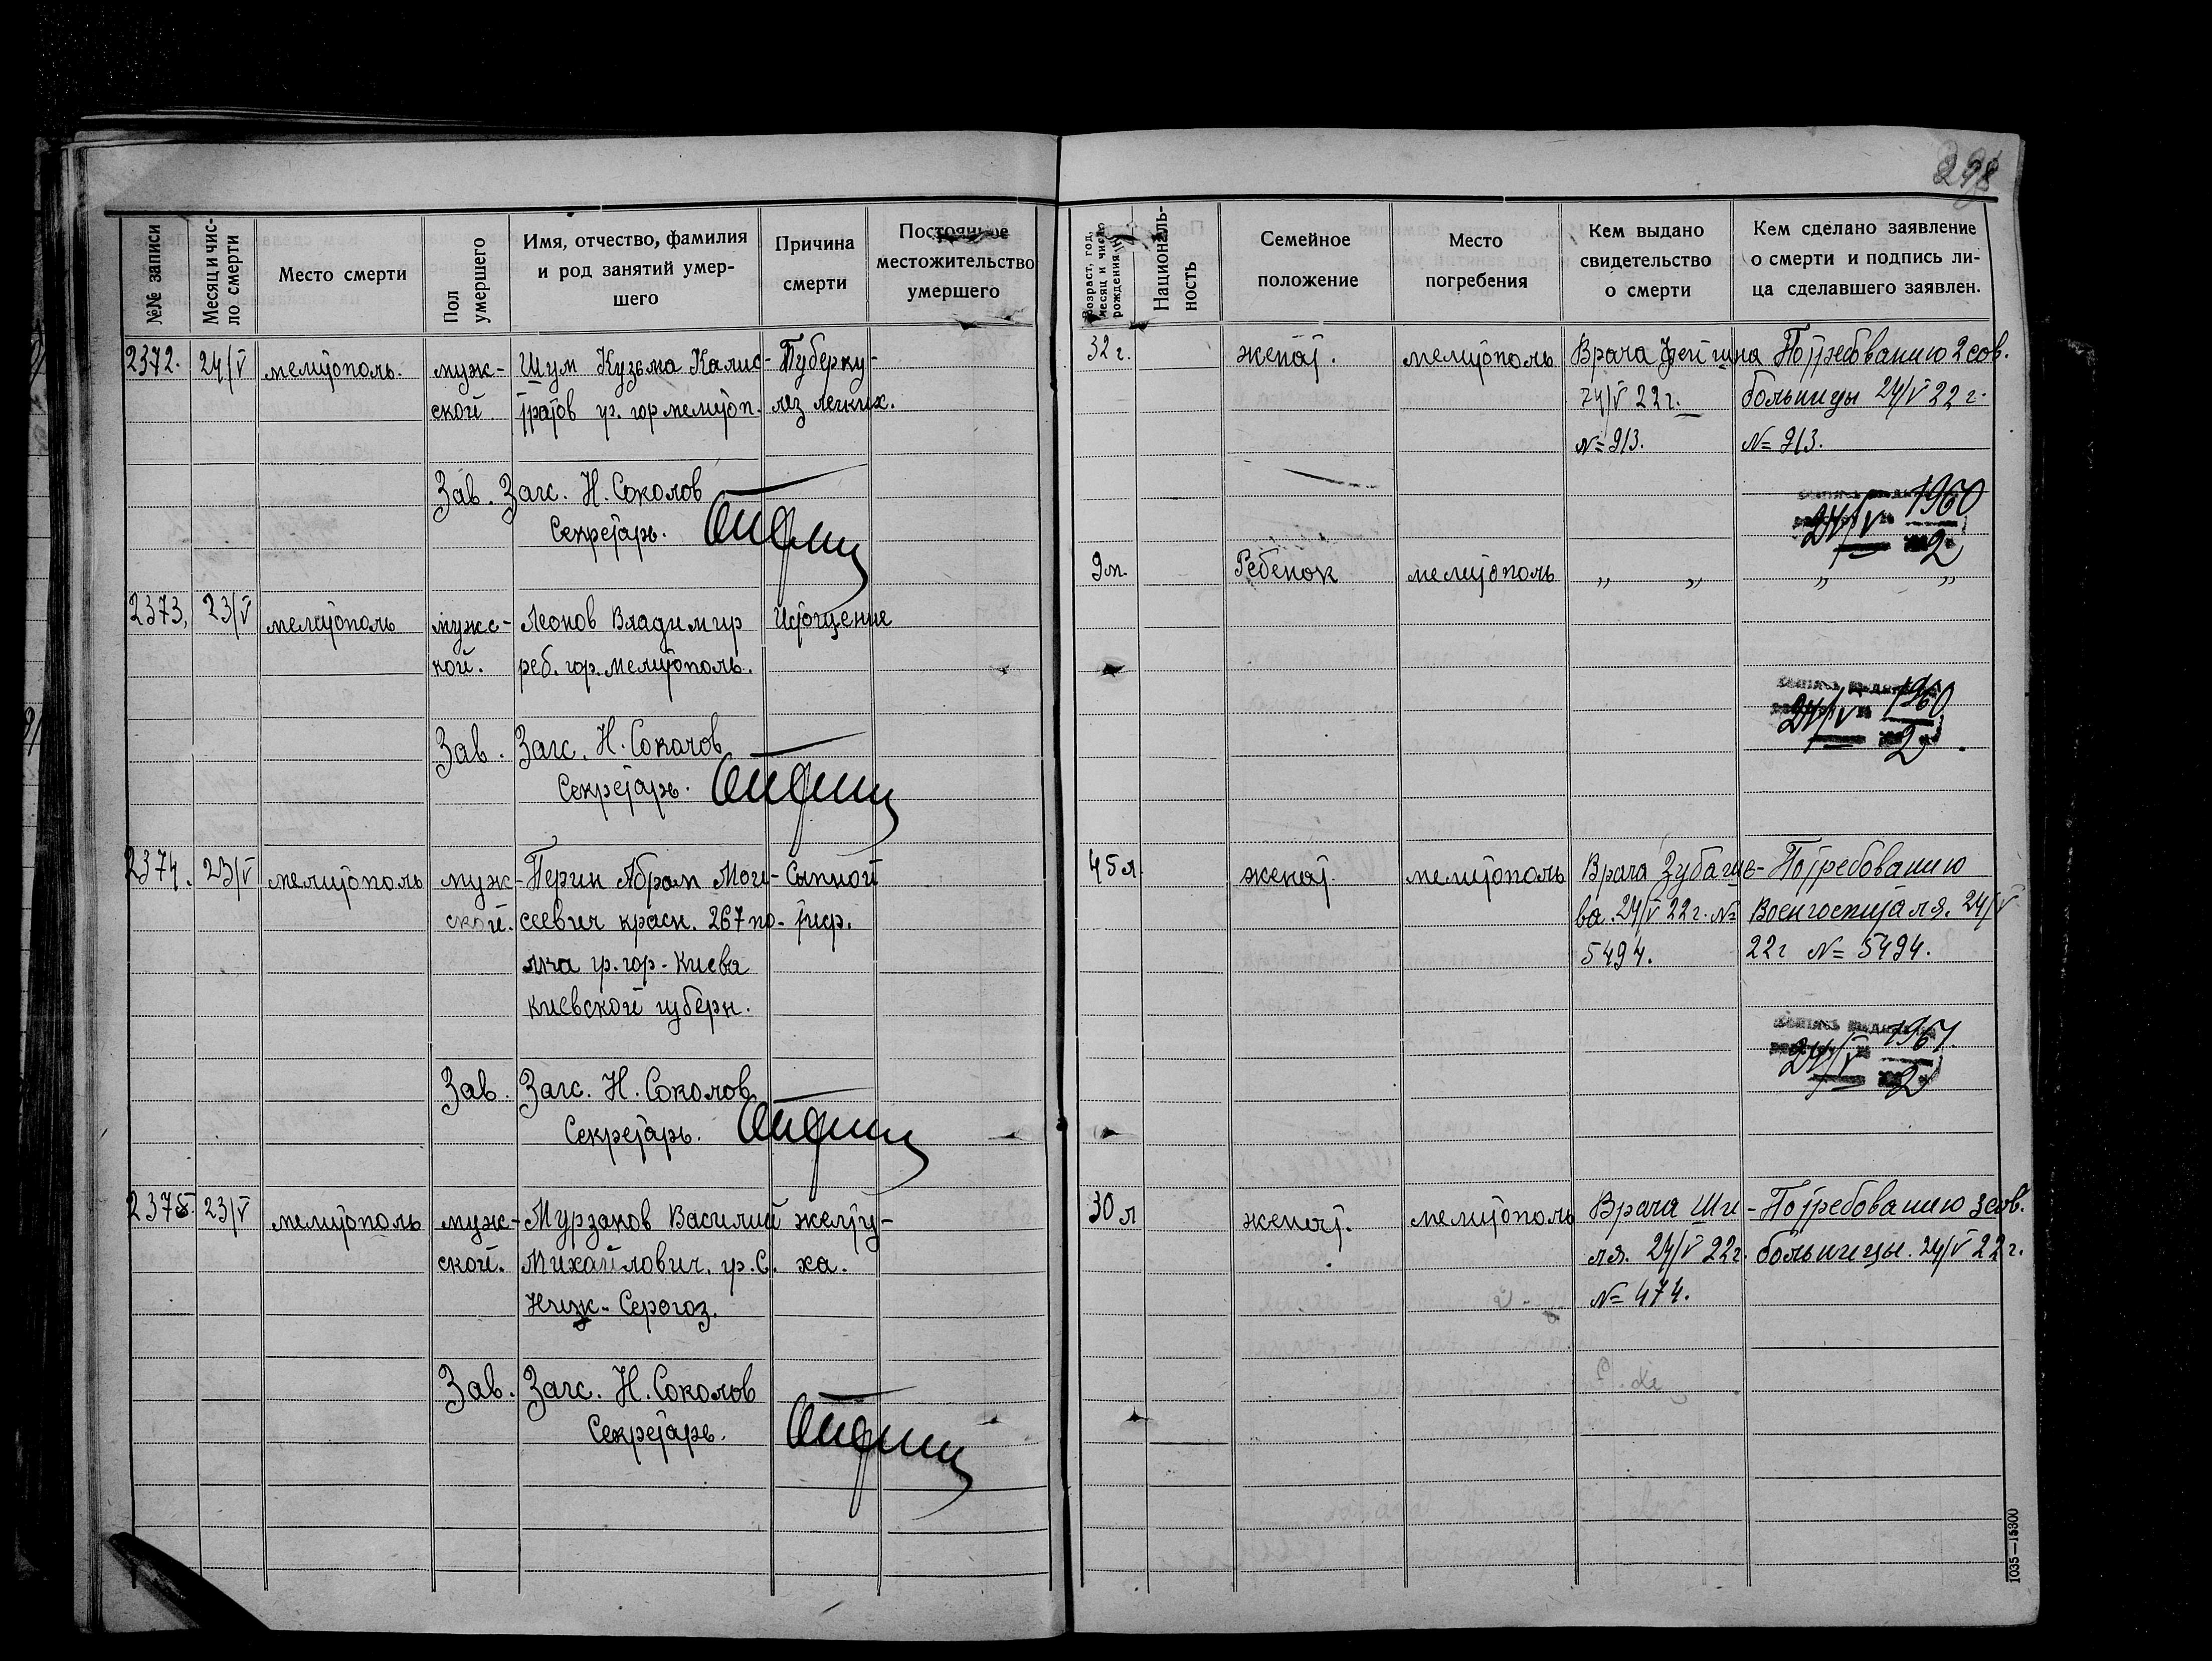 298
№№ записи
Месяц и чис-
ло смерти
Место смерти
Пол
умершего
Имя, отчество, фамилия
и род занятий умер-
шего
Причина
смерти
Постоянное
местожительство
умершего
Возраст, год,
месяц и число
рождения
Националь-
ность
Семейное
положение
Место
погребения
Кем выдано
свидетельство
о смерти
Кем сделано заявление
о смерти и подпись ли-
ца сделавшего заявлен.
2372. 24/V мелитополь. муж- Шум Кузьма Калис- Туберку-
ской тратов гр. гор мелитоп. лез легких.
32 г. женат. мелитополь Врача Фейгина По требованию 2 сов.
24/V 22 г. больницы 24/V 22 г.
№ 913. № 913.
Зав. Загс. Н. Соколов
Секретарь.
24/V 1960
2
9 м. Ребенок мелитополь „ „ „ „
2373, 23/V мелитополь мужс- Леонов Владимир Истощение
кой. реб. гор. мелитополь.
24/V 1960
2
Зав. Загс. Н. Соколов
Секретарь.
2374. 23/V мелитополь муж- Перин Абрам Мои- Сыпной
ской. сеевич красн. 267 по- тиф.
лка гр. гор. Киева
Киевской губерн.
45 л женат. мелитополь Врача Зубаше- По требованию
ва. 24/V 22 г. № Военгоспиталя. 24/V
5494. 22 г № 5494.
24/V 1961
2
Зав. Загс. Н. Соколов
Секретарь.
2375. 23/V мелитополь муж- Мурзаков Василий желту-
ской. Михайлович. гр. С. ха.
Ниж- Серогоз.
30 л женат. мелитополь Врача Ши- По требованию 3 сов.
ля. 24/V 22 г. больницы. 24/V 22 г.
№ 474.
Зав. Загс. Н. Соколов
Секретарь.
1035—15300